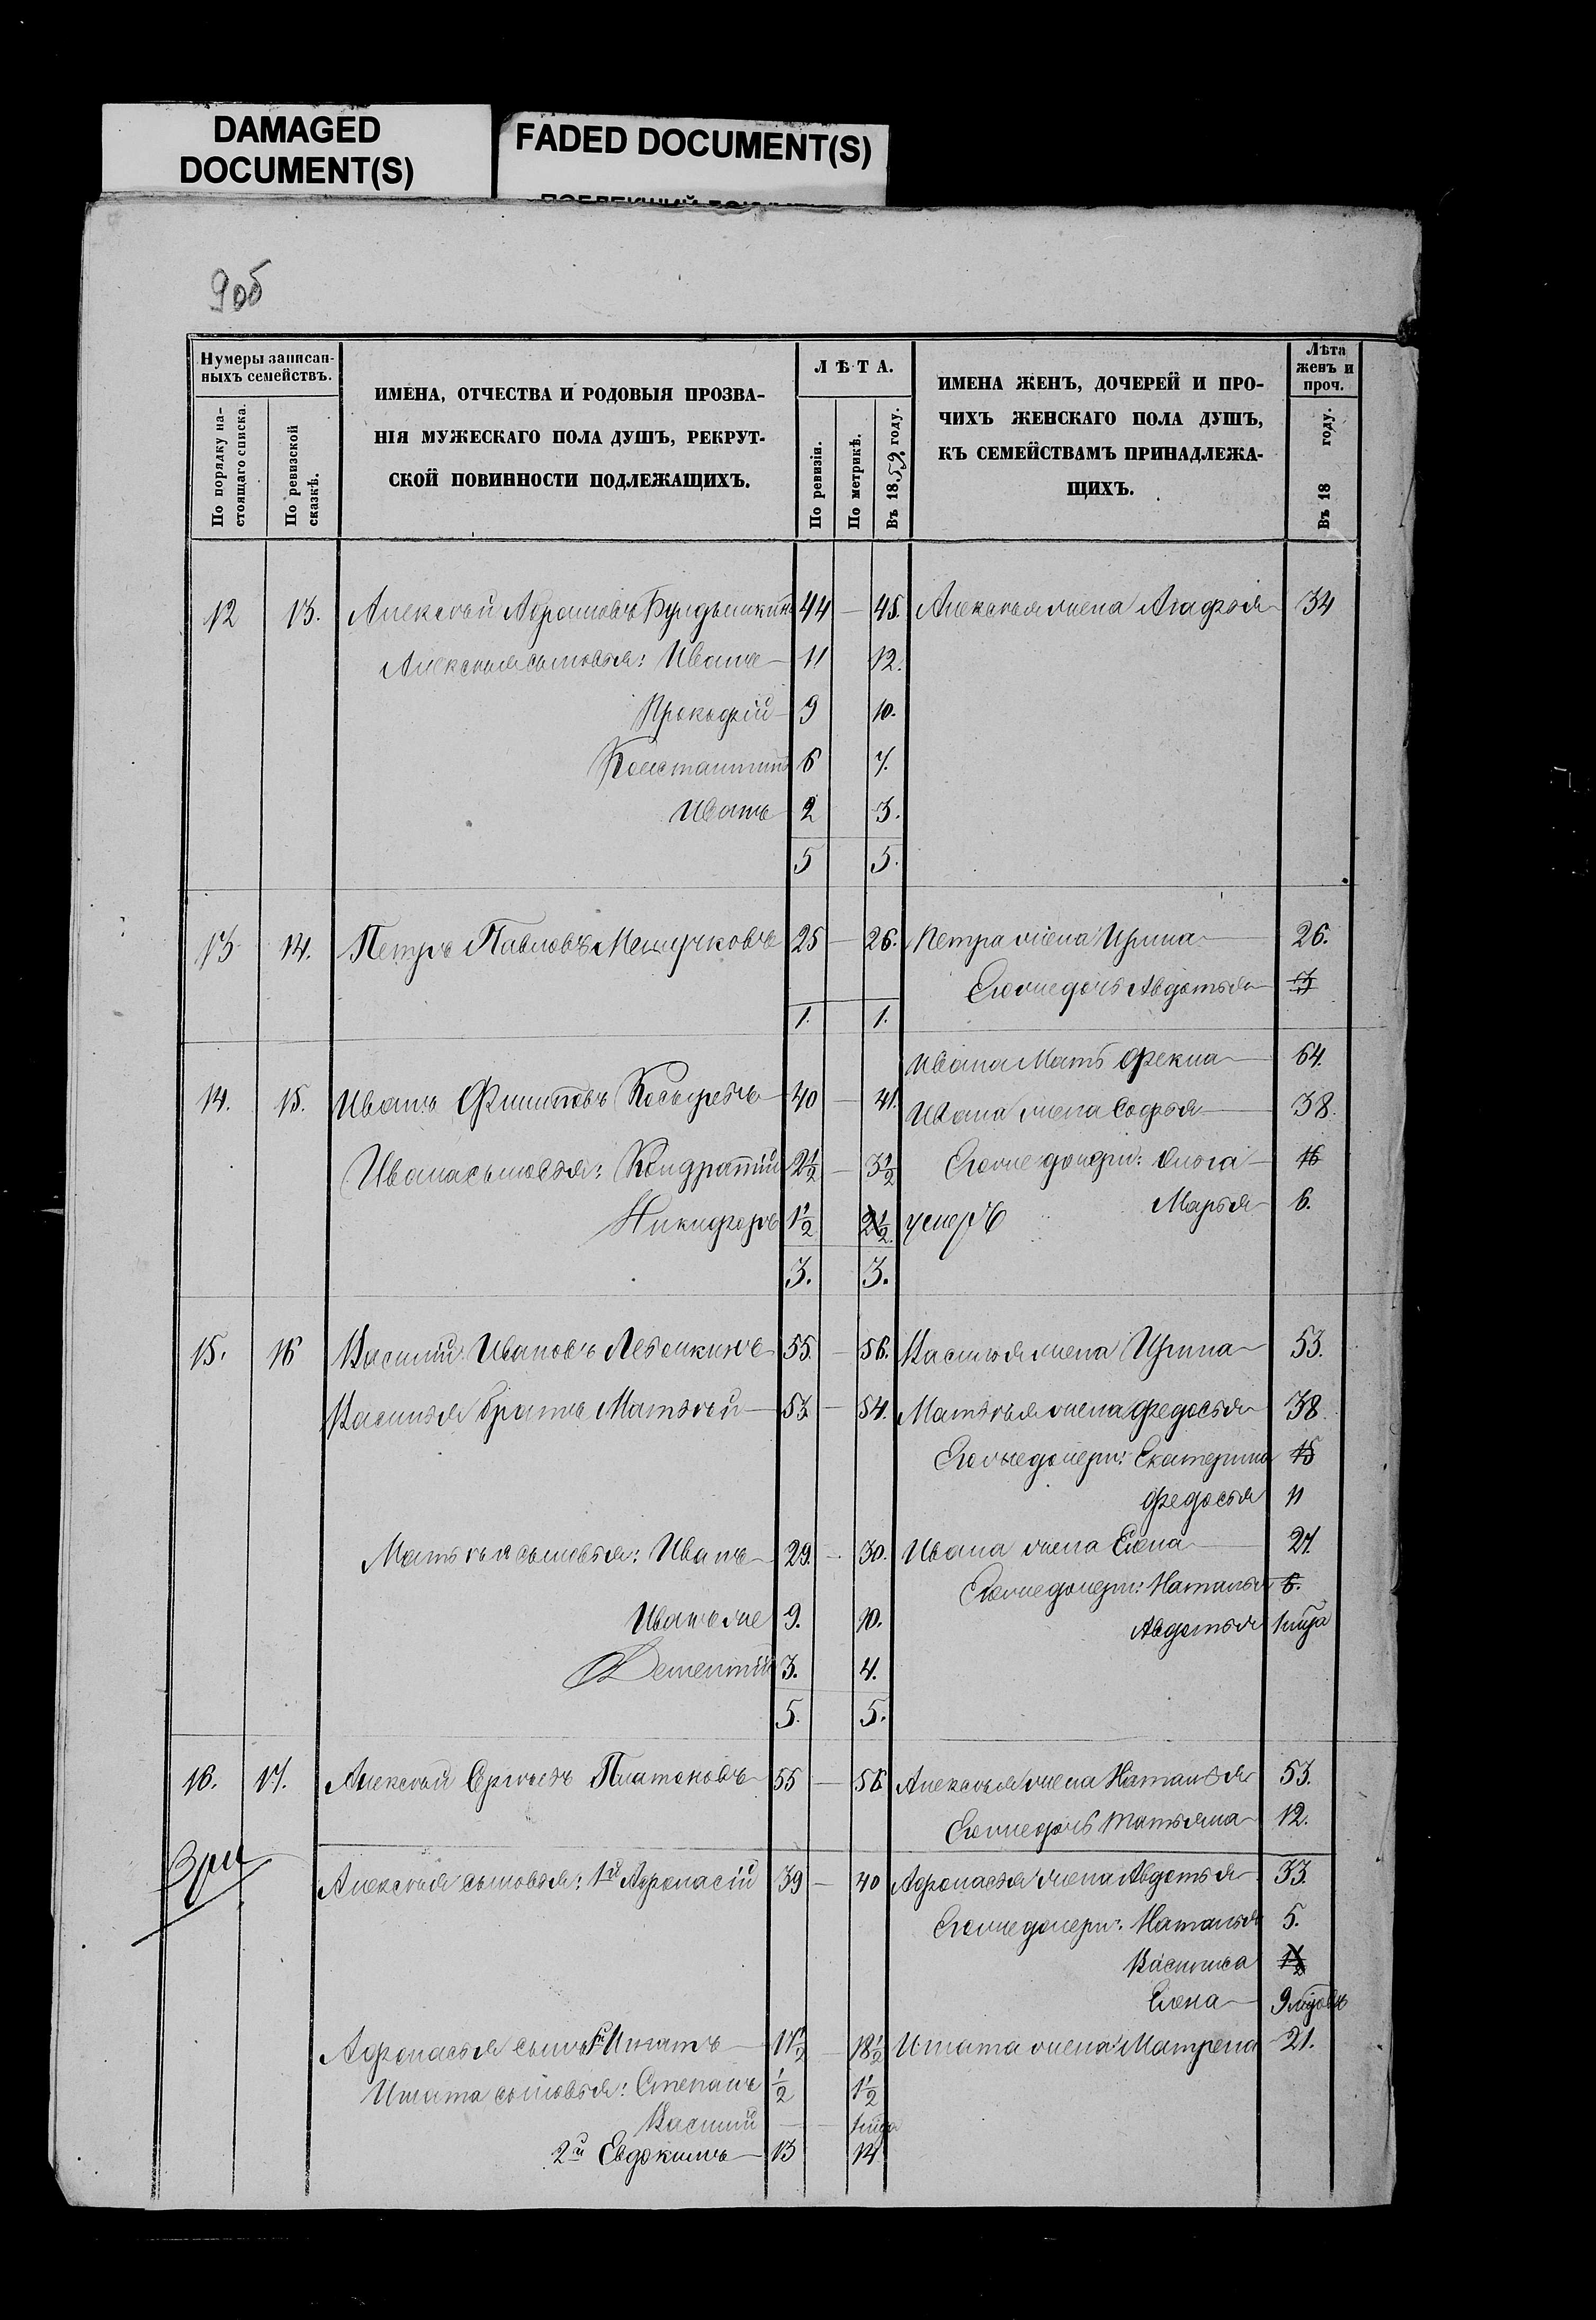 DAMAGED
DOCUMENT(S)
FADED DOCUMENT(S)
9об
Нумеры записан-
ныхъ семействъ.
По порядку на-
стоящаго списка.
По ревизской
сказкѣ.
ИМЕНА, ОТЧЕСТВА И РОДОВЫЯ ПРОЗВА-
НІЯ МУЖЕСКАГО ПОЛА ДУШЪ, РЕКРУТ-
СКОЙ ПОВИННОСТИ ПОДЛЕЖАЩИХЪ.
ЛѢТА.
По ревизіи.
По метрикѣ.
Въ 1859. году.
ИМЕНА ЖЕНЪ, ДОЧЕРЕЙ И ПРО-
ЧИХЪ ЖЕНСКАГО ПОЛА ДУШЪ,
КЪ СЕМЕЙСТВАМЪ ПРИНАДЛЕЖА-
ЩИХЪ.
Лѣта
женъ и
проч.
Въ 18 году.
12 13. Алексѣй Абрамовъ 44 — 45. Алексѣя жена Агафья 34
Алексѣя сыновья: Иванъ 11 12.
Прокофій 9 10.
Константинъ 6 7.
Иванъ 2 3.
5 5.
13 14. Петръ Павловъ 25 — 26. Петра жена Ирина 26.
Егоже дочь Авдотья 3
1. 1.
Ивана Мать Фекла 64.
14. 15. Иванъ Филиповъ Косыревъ 40 — 41. Ивана жена Софья 38.
Ивана сыновья: Кондратій 2½ — 3½ Егоже дочери: Ольга 16
Марья 6.
Никифоръ 1½ 2½ умеръ
3. 3.
15. 16 Василій Ивановъ 55. — 56. Василья жена Ирина 53.
Василья братъ Матвѣй 53 — 54. Матвѣя жена Федосья 38.
Егоже дочери: Екатерина 15
Федосья 11
Матвѣя сыновья: Иванъ 29. — 30. Ивана жена Елена 27.
Егоже дочери: Наталья 6.
Иванъ же 9. 10.
Авдотья 1 мца
Дементій 3. 4.
5. 5.
16. 17. Алексѣй Сергѣевъ Платоновъ 55 — 56 Алексѣя жена Наталья 53.
Егоже дочь Татьяна 12.
Зри
Алексѣя сыновья: 1й Афонасій 39 — 40 Афонасья жена Авдотья 33.
Егоже дочери: Наталья 5.
Василиса
Елена 9 мцовъ
Афонасья сынъ Игнатъ 17½ — 18½ Игната жена Матрена 21.
Игната сыновья: Степанъ ½ 1½
Василій — 1 мца
2й Евдокимъ 13 14